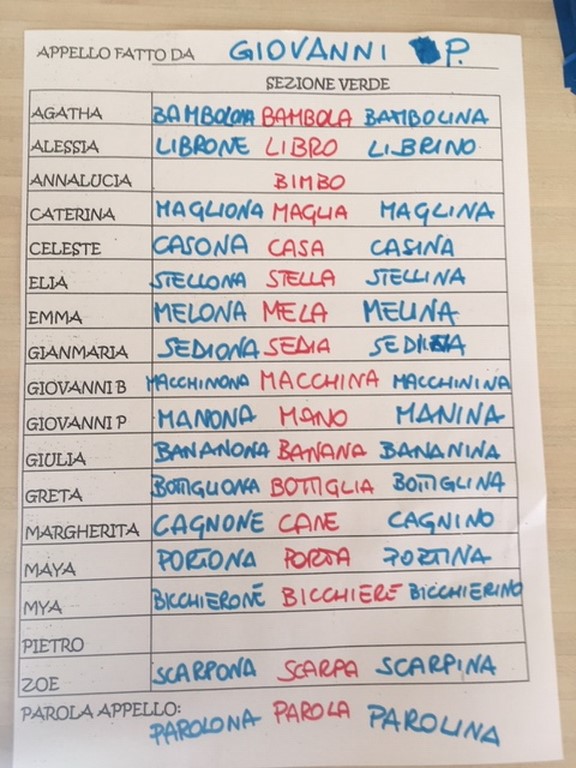 APPELLO FATTO DA GIOVANNI P.
SEZIONE VERDE
AGATHA BAMBOLONA BAMBOLA BAMBOLINA
ALESSIA LIBRONE LIBRO LIBRINO
ANNALUCIA BIMBO
CATERINA MAGLIONA MAGLIA MAGLINA
CELESTE CASONA CASA CASINA
ELIA STELLONA STELLA STELLINA
EMMA MELONA MELA MELINA
GIANMARIA SEDIONA SEDIA
GIOVANNI B MACCHINONA MACCHINA MACCHININA
GIOVANNI P MANONA MANO MANINA
GIULIA BANANONA BANANA BANANINA
GRETA BOTTIGLIONA BOTTIGLIA BOTTIGLINA
MARGHERITA CAGNONE CANE CAGNINO
MAYA PORTONA PORTA PORTINA
MYA BICCHIERONE BICCHIERE BICCHIERINO
PIETRO
ZOE SCARPONA SCARPA SCARPINA
PAROLA APPELLO: PAROLONA PAROLA PAROLINA